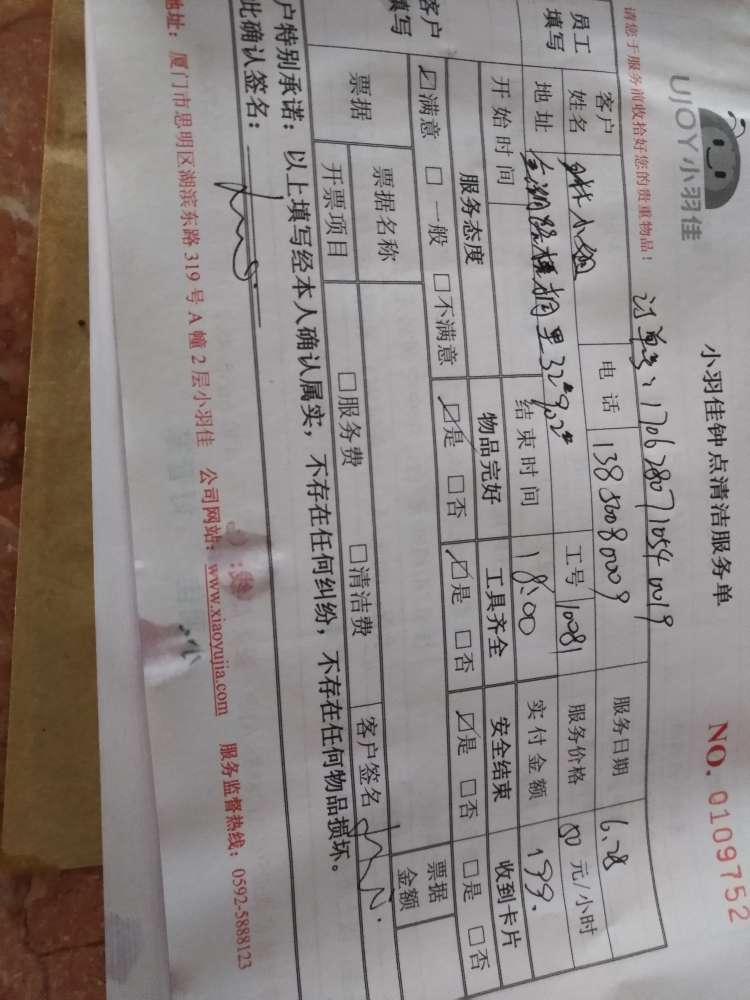 UJOY小羽佳
小羽佳钟点清洁服务单
NO. 0109752
请您于服务前收拾好您的贵重物品!
订单号:1706280710540019
员工填写
客户姓名
小姐
电话 13850080009
服务日期 6.28
地址
里32#902#
工号 10081
服务价格
元/小时
开始时间
结束时间 18:00
实付金额 199.
客户填写
服务态度
物品完好
工具齐全
安全结束
收到卡片
☑满意 □一般 □不满意
☑是 □否
☑是 □否
☑是 □否
□是 □否
票据
票据名称
票据金额
开票项目
□服务费
□清洁费
客户签名
户特别承诺:以上填写经本人确认属实,不存在任何纠纷,不存在任何物品损坏。
此确认签名:
地址:厦门市思明区湖滨东路319号A幢2层小羽佳 公司网站:www.xiaoyujia.com 服务监督热线:0592-5888123